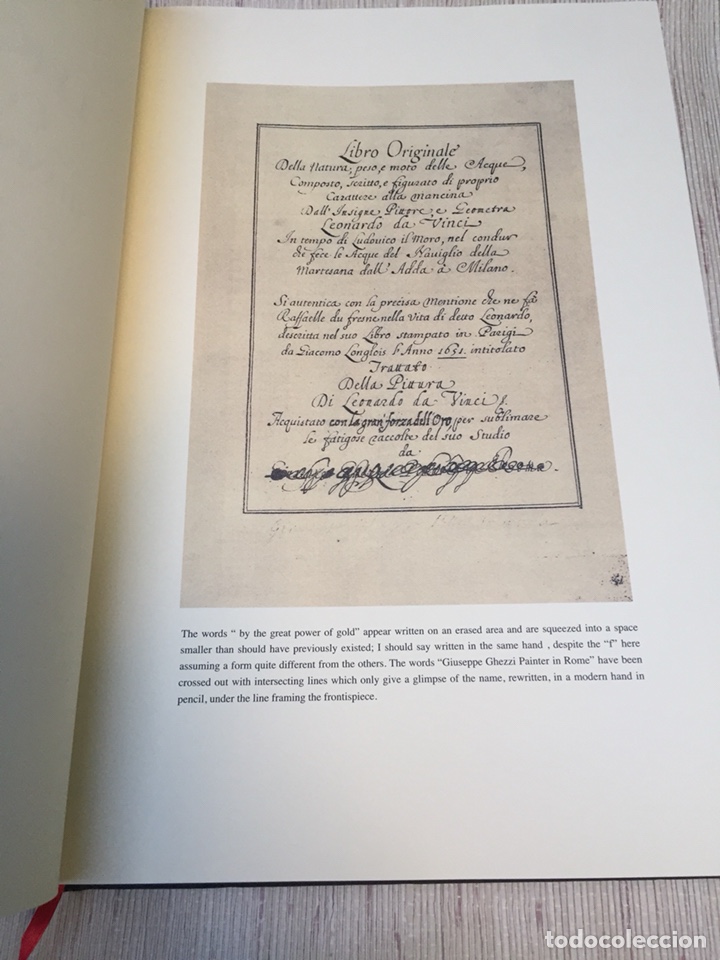 Libro Originale
Della Natura, peso, e moto delle Acque,
Composto, scritto, e figurato di proprio
Carattere alla mancina
Dall' Insigne Pittore, e Geometra
Leonardo da Vinci
In tempo di Ludovico il Moro, nel condur
che fece le Acque del Naviglio della
Martesana dall' Adda à Milano.
Si autentica con la precisa Mentione che ne fà
Raffaelle du fresne nella Vita di detto Leonardo,
descritta nel suo Libro stampato in Parigi
da Giacomo Longlois l'Anno 1651. intitolato
Trattato
Della Pittura
Di Leonardo da Vinci
Acquistato con la gran forza dell'Oro, per sublimare
le fatigose raccolte del suo Studio
da
The words “ by the great power of gold” appear written on an erased area and are squeezed into a space
smaller than should have previously existed; I should say written in the same hand , despite the “f” here
assuming a form quite different from the others. The words “Giuseppe Ghezzi Painter in Rome” have been
crossed out with intersecting lines which only give a glimpse of the name, rewritten, in a modern hand in
pencil, under the line framing the frontispiece.
todocoleccion